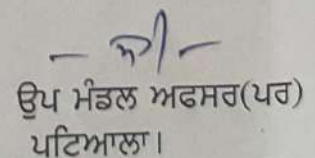 ਉਪ ਮੰਡਲ ਅਫਸਰ(ਪਰ)
ਪਟਿਆਲਾ।